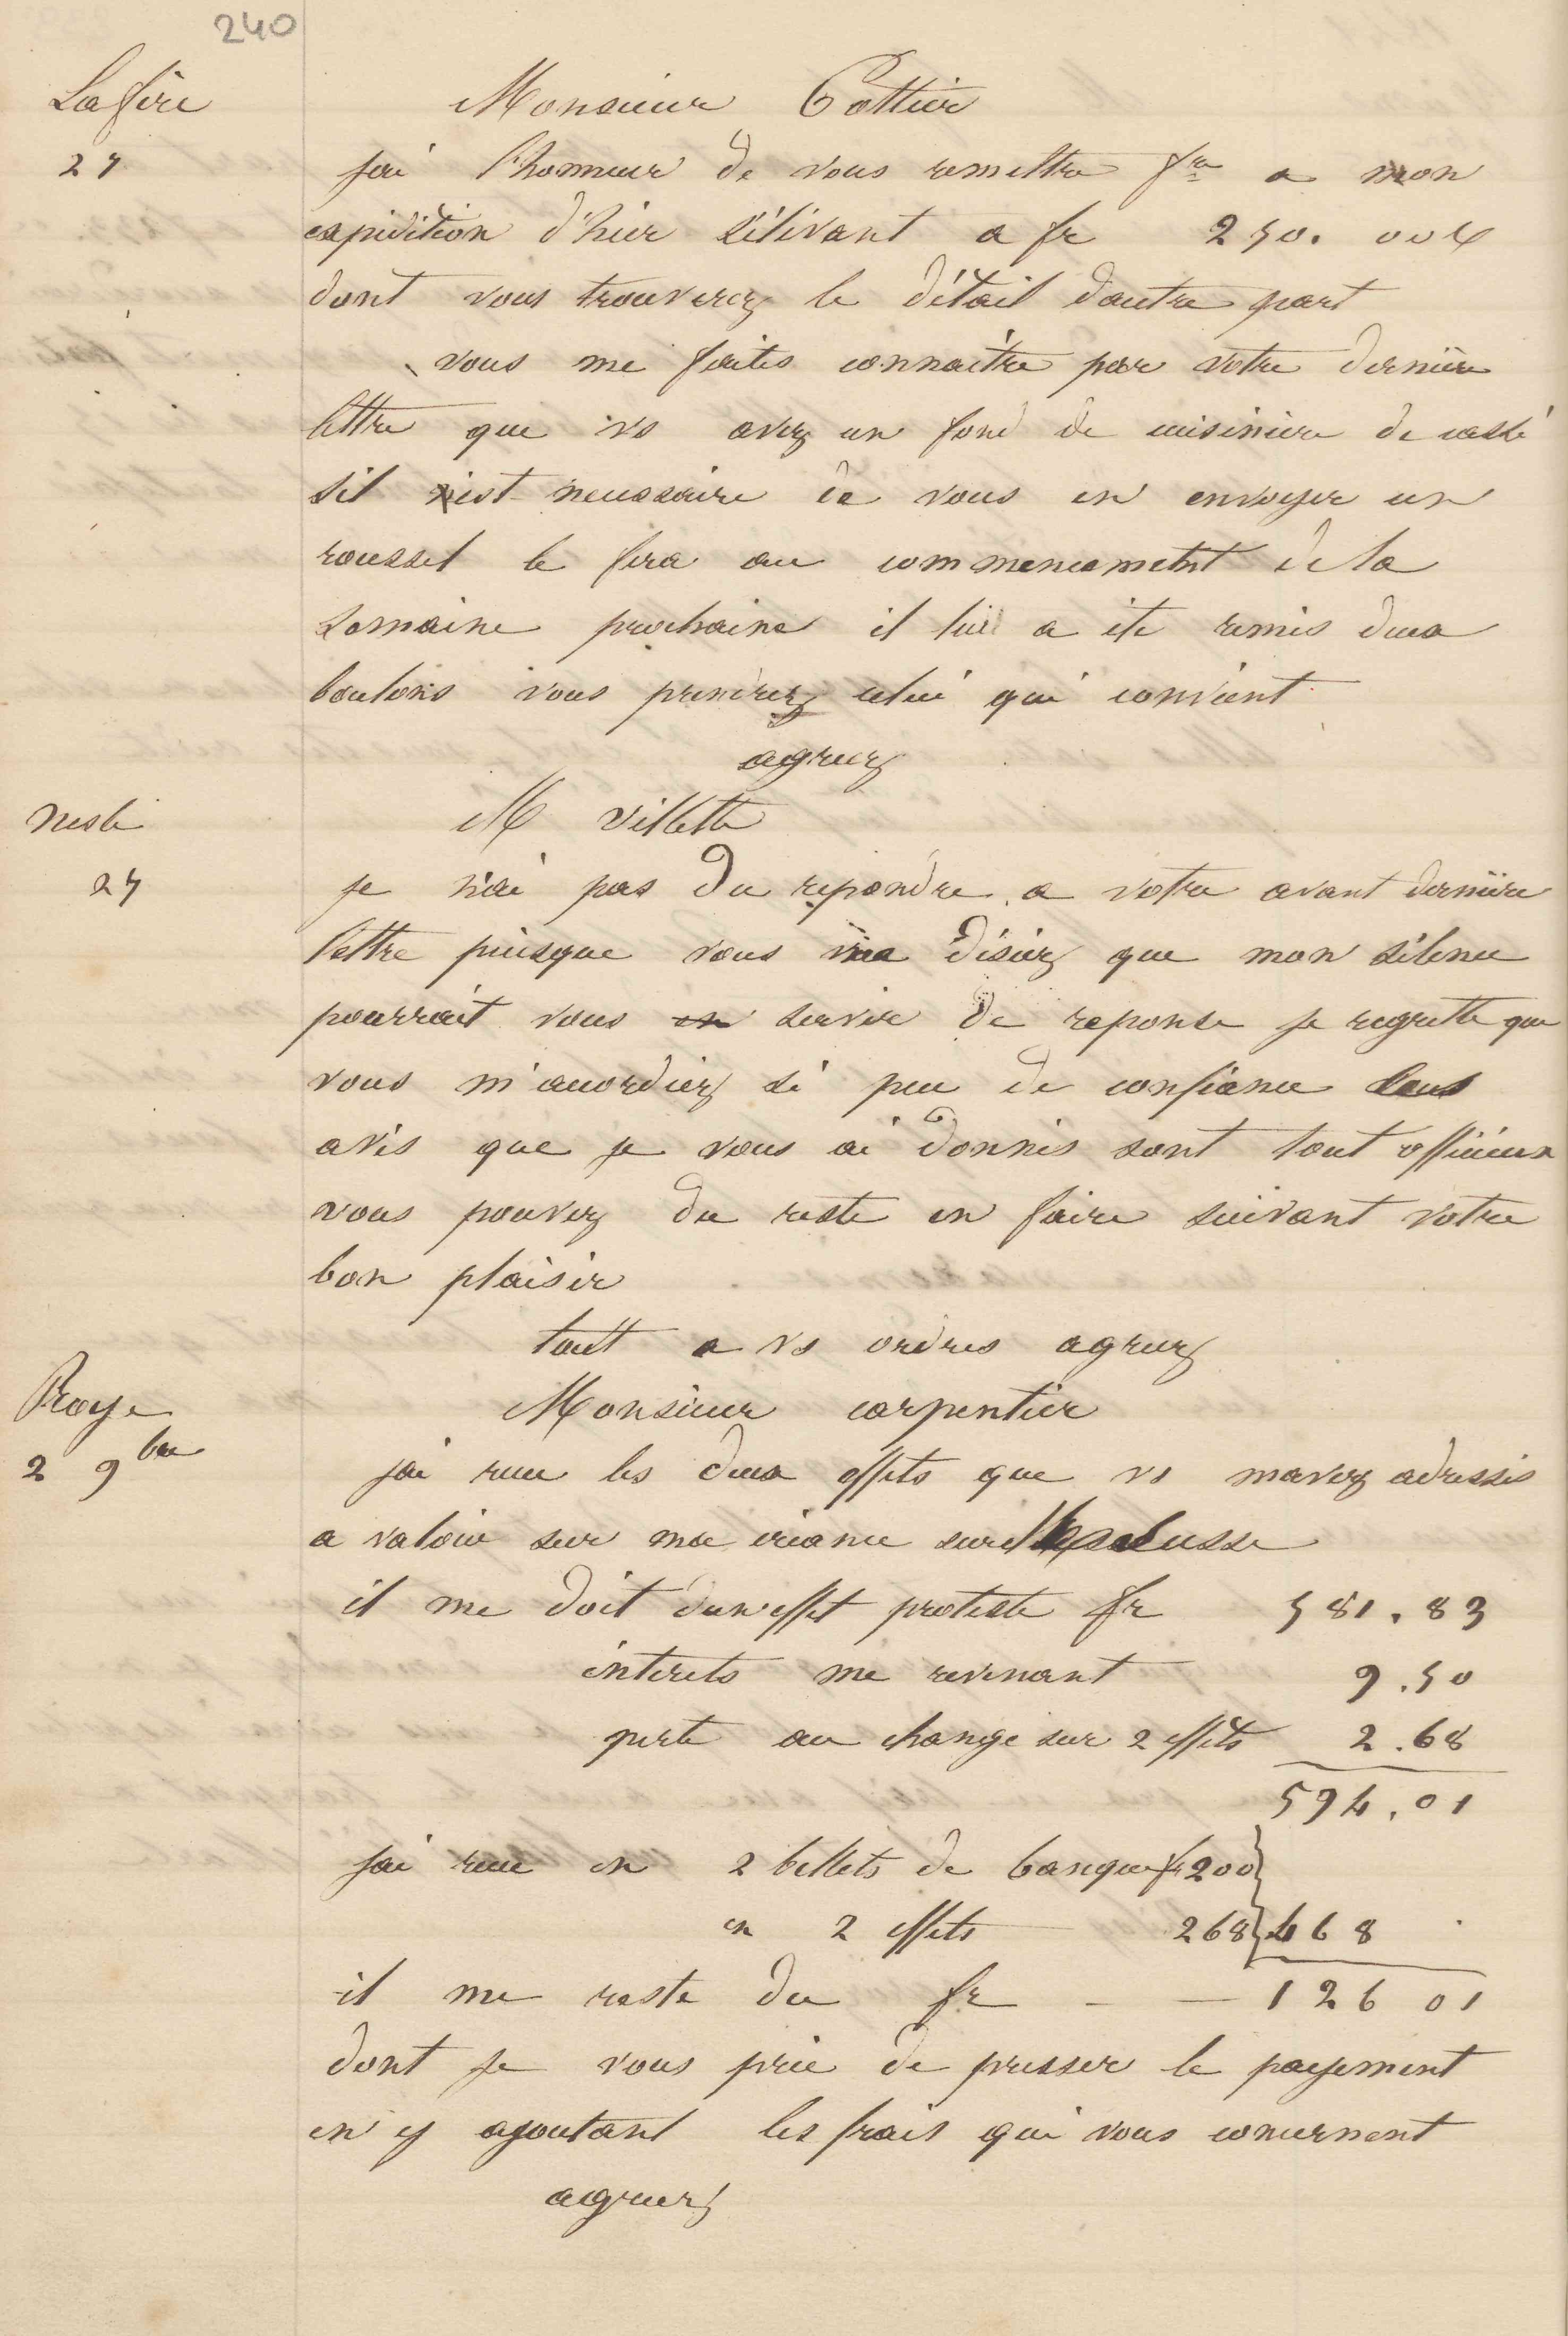 240
Lafère
Monsieur Cottier
27
jai l'honneur de vous remettre fre a mon
expidition d'hier s'élivant a fr 250. 00
dont vous trouverez le détail dautre part
vous me faites connaitre par votre dernière
lettre que vs avez un fond de cuisiniere de cassé
sil est necessaire de vous en envoyer un
roussel le fera au commencement de la
semaine prochaine il lui a ete remis deux
boulons vous prendrez celui qui convient
agreez
nesle
M villette
27
je n'ai pas du repondre a votre avant dernière
lettre puisque vous me disiez que mon silence
pourrait vous en servir de reponse je regrette que
vous m'acordiez si peu de confiance les
avis que je vous ai donnés sont tout officieux
vous pouvez du reste en faire suivant votre
bon plaisir
tout a vs ordres agreez
Roye
Monsieur carpentier
2 9bre
jai recu les deux effets que vs mavez adressés
a valoir sur ma créance sur
il me doit dun effet protesté fr 581.83
interets me revenant 9.50
perte au change sur 2 effets 2.68
594.01
jai recu en 2 billets de banque fr 200
en 2 effets 268 468
il me reste du fr — — 126 01
dont je vous prie de presser le payement
en y ajoutant les frais qui vous concernent
agreez